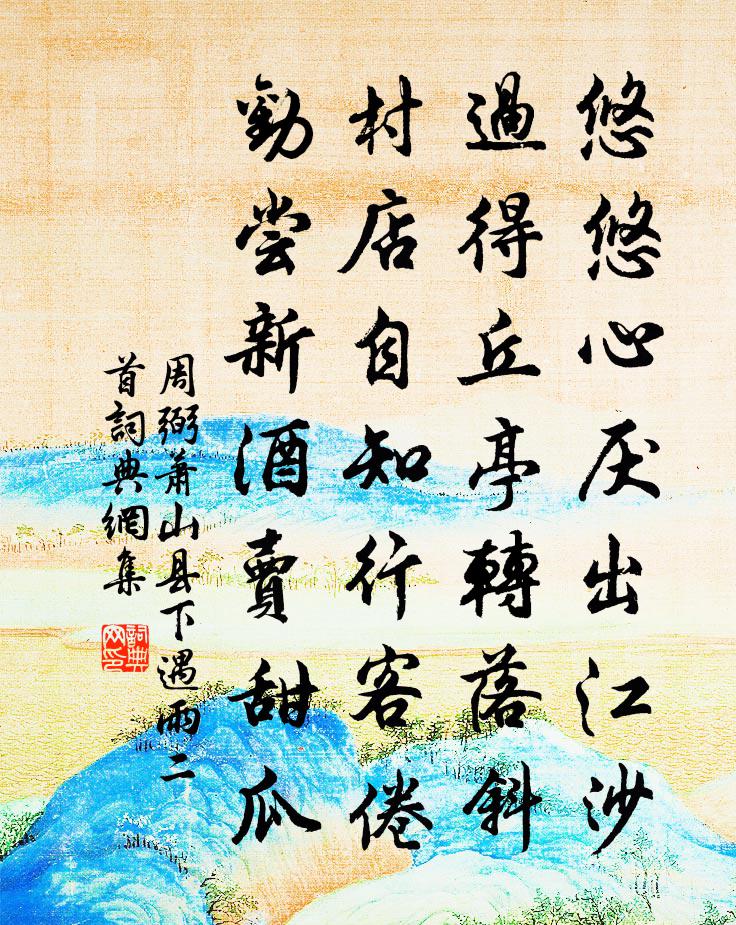 悠悠心厌出江沙
過得丘亭轉落斜
村店自知行客倦
勸尝新酒賣甜瓜
周弼萧山县下遇雨二
首詞典網集
詞典
网印